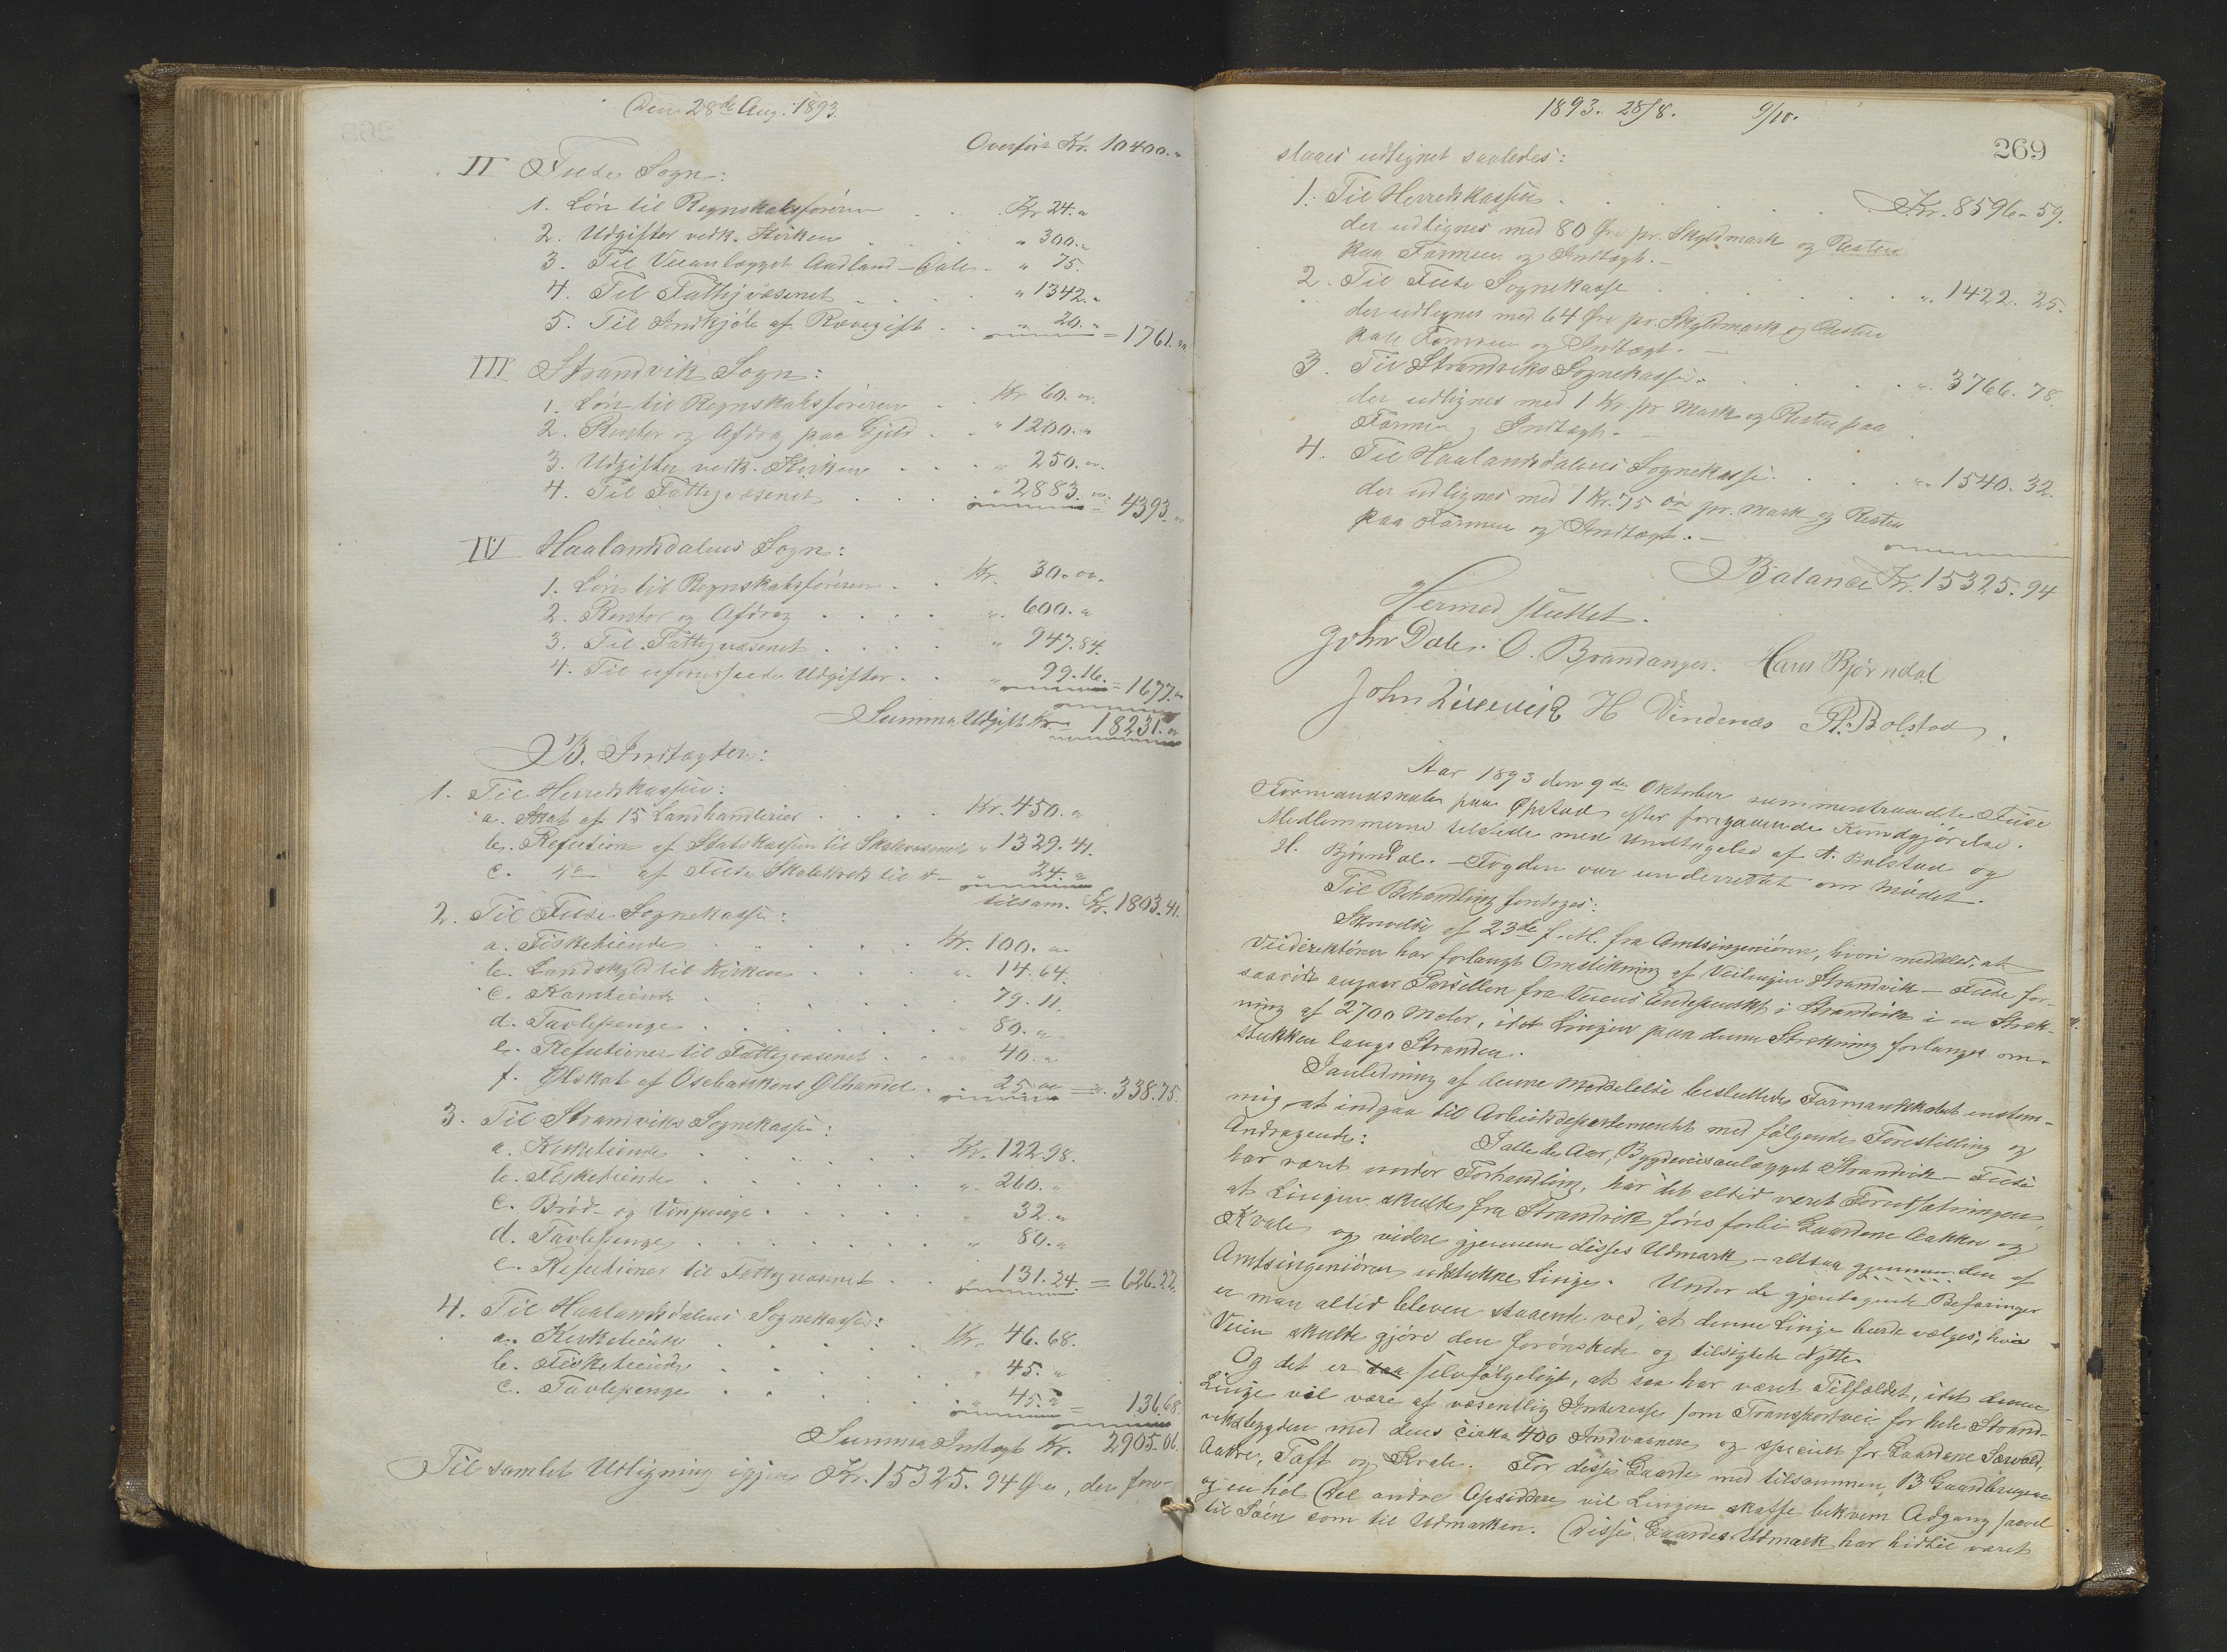 Den 28de Aug. 1893.
Overført Kr. 10400. "
II Fuse Sogn:
1. Løn til Regnskabsføreren . . Kr 24. "
2. Udgifter vedk. Kirken . . " 300. "
3. Til Veianlægget Aadland - Dale - " 75.
4. Til Fattigvæsenet . . . " 1342. "
5. Til Indkjøb af Rævegift . . " 20. " = 1761. "
III Strandvik Sogn:
1. Løn til Regnskabsføreren . . Kr 60. "
2. Renter og Afdrag paa Gjeld . . " 1200. "
3. Udgifter vedk. Kirken . . . " 250. "
4. Til Fattigvæsenet . . . " 2883. " = 4393. "
IV Haalandsdalens Sogn:
1. Løn til Regnskabsføreren . . Kr. 30. "
2. Renter og Afdrag . . . . " 600. "
3. Til Fattigvæsenet . . . . " 947.84.
4. Til uforudseede Udgifter . . " 99.16. = 1677. "
Summa Udgift Kr. 18231. "
B. Indtægter:
1. Til Herredskassen:
a. Skat af 15 Landhandlerier . . . . Kr. 450. "
b. Refution af Statskassen til Skolevæsenet " 1329. 41.
c. do af Fuse Skolekreds til do " 24. "
tilsam. Kr. 1803.41.
2. Til Fuse Sognekasse:
a. Fisketiende . . . . . Kr. 100. "
b. Landskyld til Kirken . . . " 14.64.
c. Korntiende . . . . . 79. 11.
d. Tavlepenge . . . . . . " 80. "
e. Refutioner til Fattigvæsenet . . " 40. "
f. Ølskat af Osebakkens Ølhandel . . 25. " = " 338.75.
3. Til Strandviks Sognekasse:
a. Kirketiende . . . . . . Kr. 122.98.
b. Fisketiende . . . . . . " 260. "
c. Brød- og Vinpenge . . . . . " 32. "
d. Tavlepenge . . . . . . . " 80. "
e. Refutioner til Fattigvæsenet . . " 131.24. = 626.22.
4. Til Haalandsdalens Sognekasse:
a. Kirketiende . . . . . Kr. 46.68.
b. Fisketiende . . . . . " 45. "
c. Tavlepenge . . . . . . " 45. " = 136.68.
Summa Indtægt Kr. 2905.06.
Til samlet Udligning igjen Kr. 15325. 94 Øre, der fore-
1893. 28/8. 9/10.
269
slaaes udlignet saaledes:
1. Til Herredskassen . . . . . . . Kr. 8596 - 59.
der udlignes med 80 Øre pr. Skyldmark og Resten
paa Formue og Indtægt. -
2. Til Fuse Sognekasse . . . . . . " 1422. 25.
der udlignes med 64 Øre pr. Skyldmark og Resten
paa Formue og Indtægt. -
3. Til Strandviks Sognekasse . . . . . " 3766. 78.
der udlignes med 1 Kr. pr. Mark og Resten paa
Formue og Indtægt. -
4. Til Haalandsdalens Sognekasse . . . . " 1540. 32.
der udlignes med 1 Kr. 75 Øre pr. Mark og Resten
paa Formue og Indtægt. -
Balance Kr. 15325.94
Hermed sluttet.
John Dale. O. Brandanger. Hans Bjørndal
John Livevik H Vindenæs A. Bolstad.
Aar 1893 den 9de Oktober sammentraadte Fuse
Formandskab paa Opstad efter foregaaende Kundgjørelse.
Medlemmerne tilstede med Undtagelse af A. Bolstad og
H. Bjørndal. - Fogden var underrettet om Mødet.
Til Behandling foretoges:
Skrivelse af 23de f. M. fra Amtsingeniøren, hvori meddeles, at
Veidirektøren har forlangt Omstikning af Veilinjen Strandvik - Fuse for-
saavidt angaar Parsellen fra Veiens Endepunkt i Strandvik i en Stræk-
ning af 2700 Meter, idet Linjen paa denne Strekning forlanges om-
stukken langs Stranden.
I anledning af denne Meddelelse besluttede Formandskabet enstem-
mig at indgaa til Arbeidsdepartementet med følgende Forestilling og
Andragende: I alle de Aar, Bygdeveisanlægget Strandvik - Fuse
har været under Forhandling, har det altid været Forudsætningen,
at Linjen skulde fra Strandvik føres forbi Gaardene Aakre og
Kvale og videre gjennem disses Udmark, - altsaa gjennem den af
Amtsingeniøren udstukne Linje. Under de gjentagende Befaringer
er man altid bleven staaende ved, at denne Linje burde vælges, hvis
Veien skulde gjøre den forønskede og tilsigtede Nytte.
Og det er saa selvfølgeligt, at saa har været Tilfældet, idet denne
Linje vil være af væsentlig Interesse som Transportvei for hele Strand-
viksbygden med dens cirka 400 Indvaanere og specielt for Gaardene Sævold,
Aakre, Tuft og Kvale. For disse Gaarde med tilsammen 13 Gaardbrugere
og en hel Del andre Opsiddere vil Linjen skaffe bekvem Adgang saavel
til Søen som til Udmarken. Disse Gaardes Udmark har hidtil været